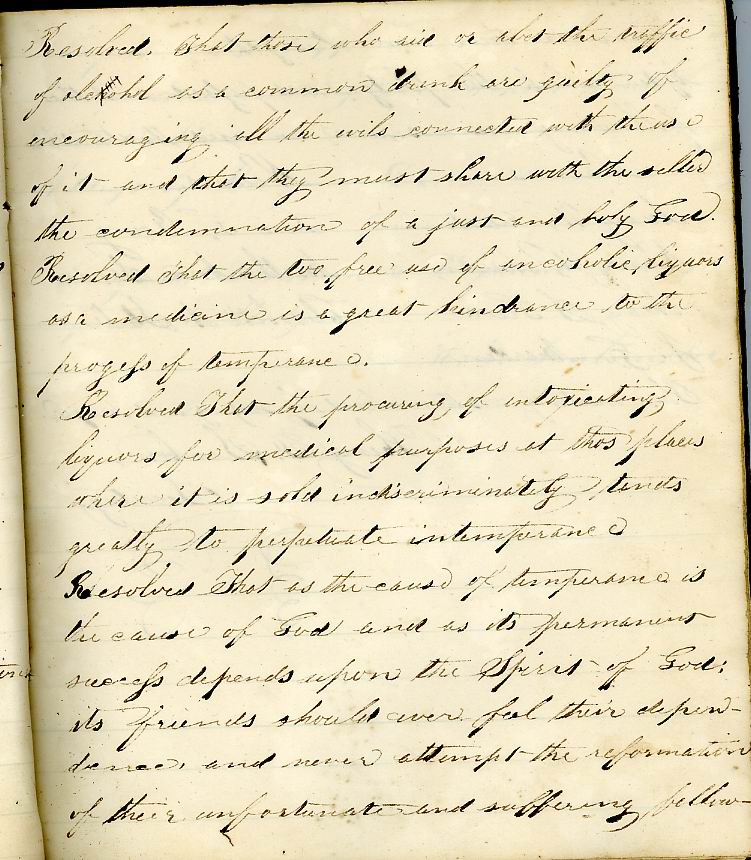 Resolved. That those who aid or abet the traffic
of alcohol as a common drink are guilty of
encouraging all the evils connected with the use
of it and that they must share with the seller
the condemnation of a just and holy God.
Resolved That the too free use of ancoholic liquors
as a medicine is a great hindrance to the
progess of temperance.
Resolved That the procuring of intoxicating
liquors for medical purposes at thos places
where it is sold indiscriminately tends
greatly to perpetuate intemperance
Resolved That as the cause of temperance is
the cause of God and as its permanent
success depends upon the Spirit of God;
its friends should ever feel their depen-
dence, and never attempt the reformation
of their unfortunate and suffering fellow-